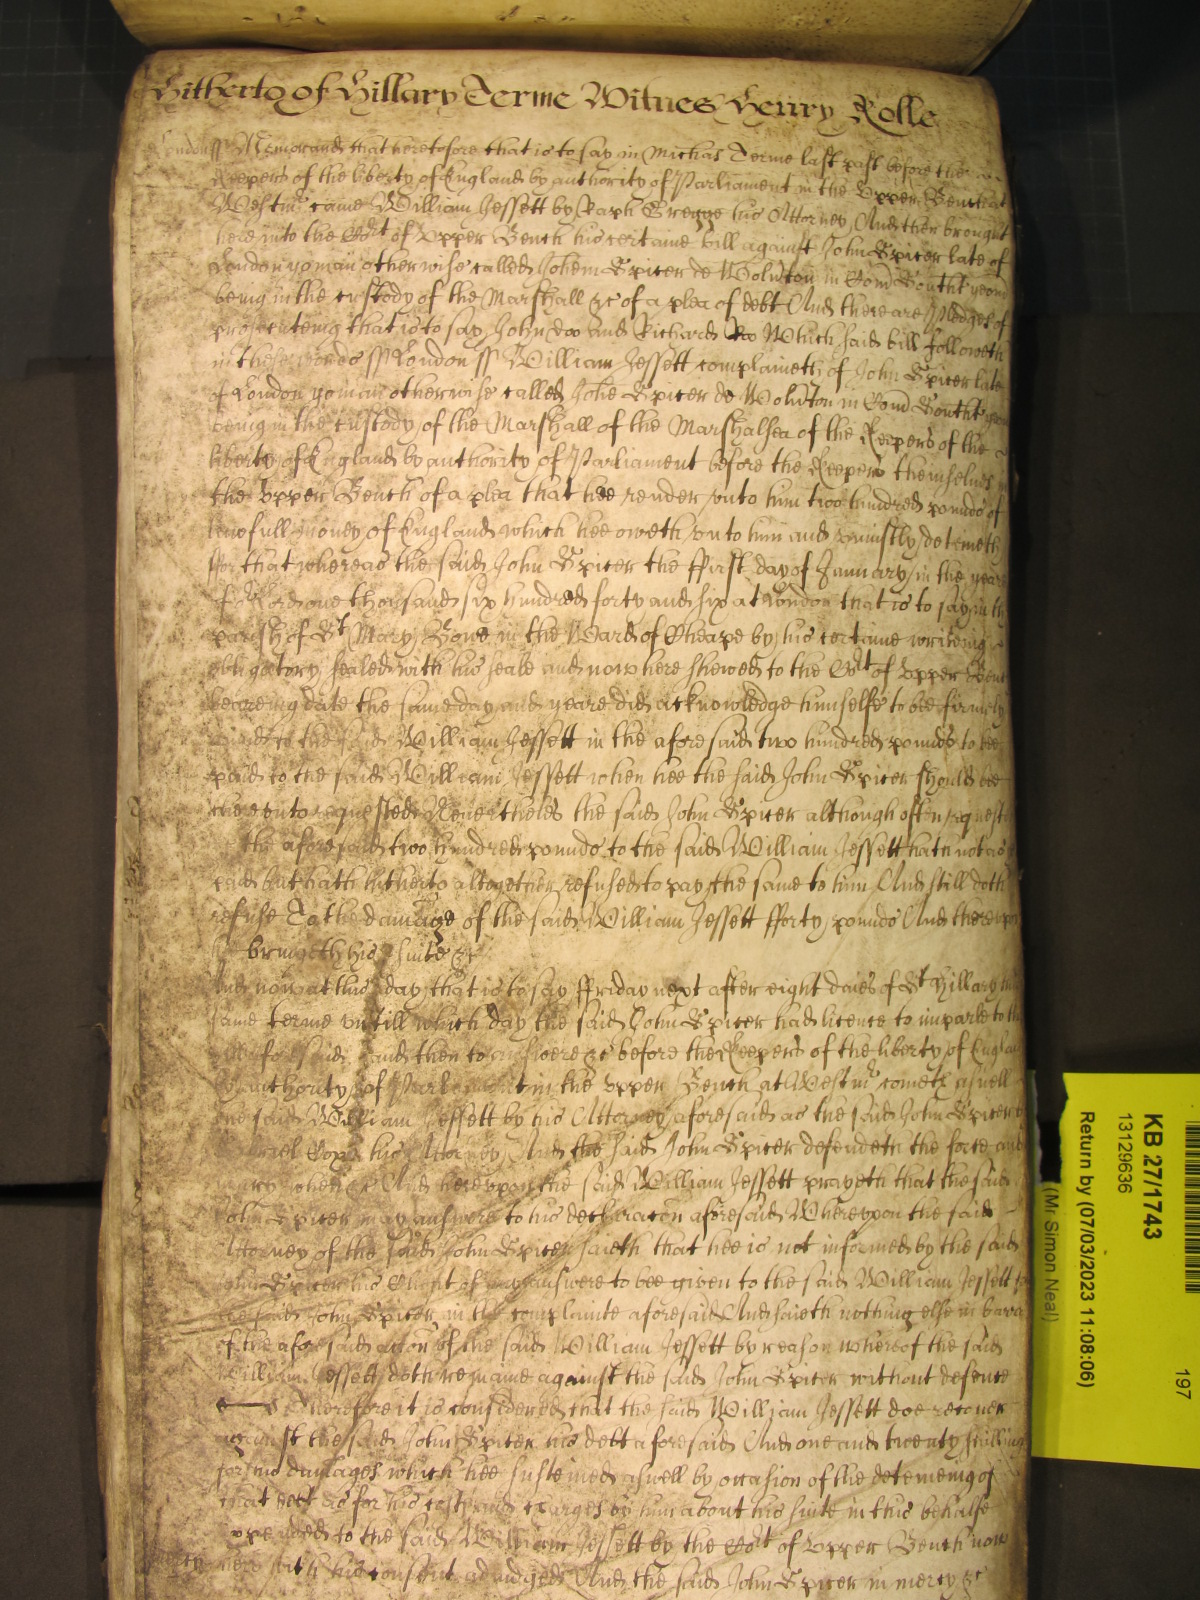 Hitherto of Hillary Terme Witnes Henry Rolle
London ss Memorand that heretofore that is to say in Michas Terme last past before the
Keepers of the liberty of England by authority of Parliament in the Upper Bench at
Westmr came William Jessett by Raph Gregge his Attorney And then brought
here into the Cort of Upper Bench his certaine bill against John Spicer late of
London yoman otherwise called Johem Spicer de in Com Southt yeom
being in the custody of the Marshall &c of a plea of debt And there are Pledges of
prosecuteing that is to say John doo and Richard Roo Which said bill followeth
in these words ss London ss William Jessett complaineth of John Spicer late
of London yoman otherwise called Johe Spicer de in Com Southt
being in the custody of the Marshall of the Marshalsea of the Keepers of the
liberty of England by authority of Parliament before the Keepers themselves in
the Upper Bench of a plea that hee render unto him two hundred pounds of
lawfull money of England which hee oweth unto him and uniustly deteineth
For that whereas the said John Spicer the first day of January in the yeare
of or Lord one thousand six hundred forty and six at London that is to say in the
parish of St Mary Bowe in the Ward of Cheape by his certaine writeing
obligatory sealed with his seale and now here shewed to the Cort of Upper Bench
beareing date the same day and yeare did acknowledge himselfe to bee firmely
bound to the said William Jessett in the aforesaid two hundred pounds to bee
paid to the said William Jessett when hee the said John Spicer should bee
thereunto requested Neverthelesse the said John Spicer although often requested
the aforesaid two hundred pounds to the said William Jessett hath not as yet
paid but hath hitherto altogether refused to pay the same to him And still doth
refuse To the damage of the said William Jessett fforty pounds And thereupon
hee bringeth his suite &c
And now at this day that is to say ffriday next after eight daies of St Hillary this
same terme untill which day the said John Spicer had licence to imparle to the
bill aforesaid and then to answere &c before the Keepers of the liberty of England
by authority of Parliament in the Upper Bench at Westmr cometh aswell
the said William Jessett by his Attorney aforesaid as the said John Spicer by
his Attorney And the said John Spicer defendeth the force and
iniury when &c And hereupon the said William Jessett prayeth that the said
John Spicer may answere to his declaracon aforesaid Whereupon the said
Attorney of the said John Spicer saieth that hee is not informed by the said
John Spicer his Clyent of any answere to bee given to the said William Jessett for
the said John Spicer in the complainte aforesaid And saieth nothing else in barre
of the aforesaid accon of the said William Jessett by reason whereof the said
William Jessett doth remaine against the said John Spicer without defence
Therefore it is considered that the said William Jessett doe recover
against the said John Spicer his debt aforesaid And one and twenty shillings
for his damages which hee susteined aswell by occasion of the deteineing of
that debt as for his costs and charges by him about his suite in this behalfe
expended to the said William Jessett by the Cort of Upper Bench now
here with his consent adiudged And the said John Spicer in mercy &c
KB 27/1743
13129636
Return by (07/03/2023 11:08:06)
(Mr Simon Neal)
197